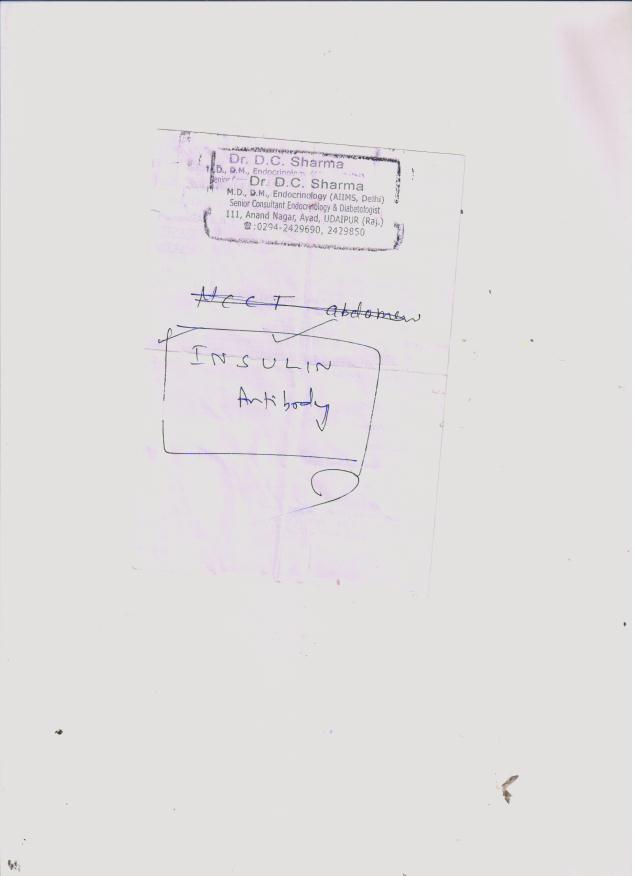 Dr. D.C. Sharma
M.D., D.M., Endocrinology
Senior
Dr. D.C. Sharma
M.D., D.M., Endocrinology (AIIMS, Delhi)
Senior Consultant Endocrinology & Diabetologist
111, Anand Nagar, Ayad, UDAIPUR (Raj.)
☎:0294-2429690, 2429850
NCCT abdomen
INSULIN
Antibody